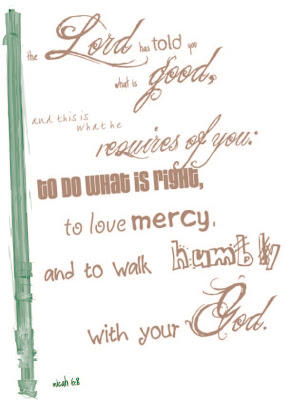 the Lord has told you
what is good,
and this is
what he
requires of you:
to do what is right,
to love mercy,
and to walk humbly
with your God.
micah 6:8